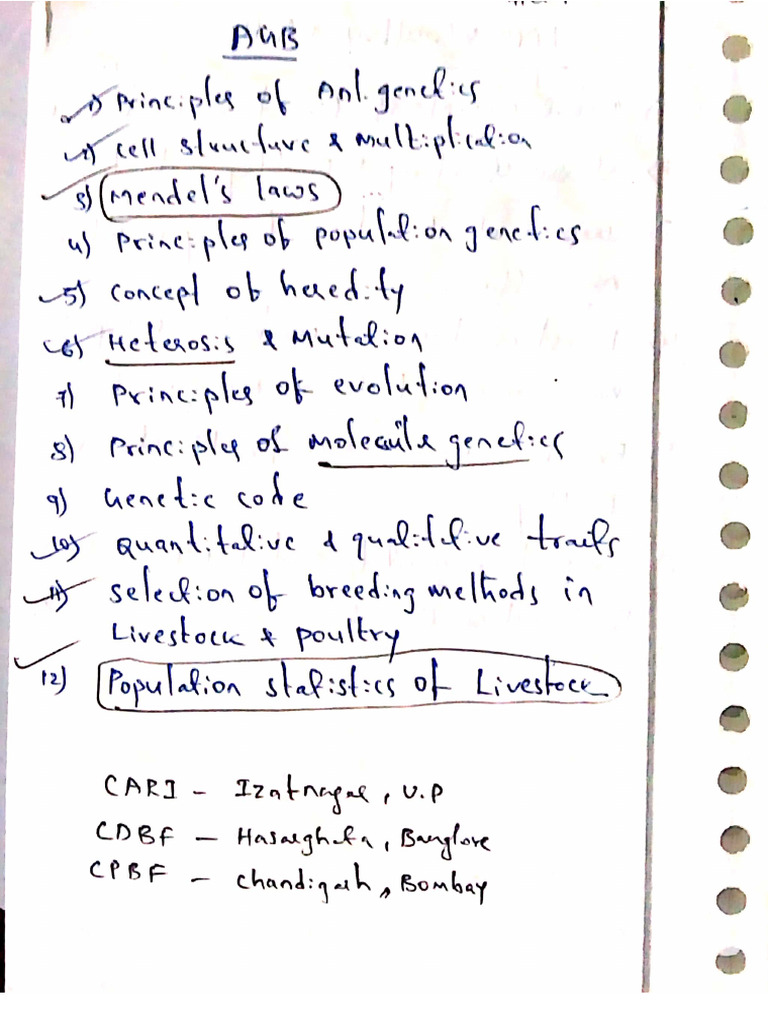 AGB
1) Principles of Anl. genetics
2) Cell structure & Multiplication
3) Mendel's laws
4) Principles of population genetics
5) concept of heredity
6) Heterosis & Mutation
7) Principles of evolution
8) Principles of molecular genetics
9) Genetic code
10) Quantitative & qualitative traits
11) selection of breeding methods in
Livestock & poultry
12) Population statistics of Livestock
CARI - Izatnagar, U.P
CDBF - Hasarghata, Banglore
CPBF - chandigarh, Bombay